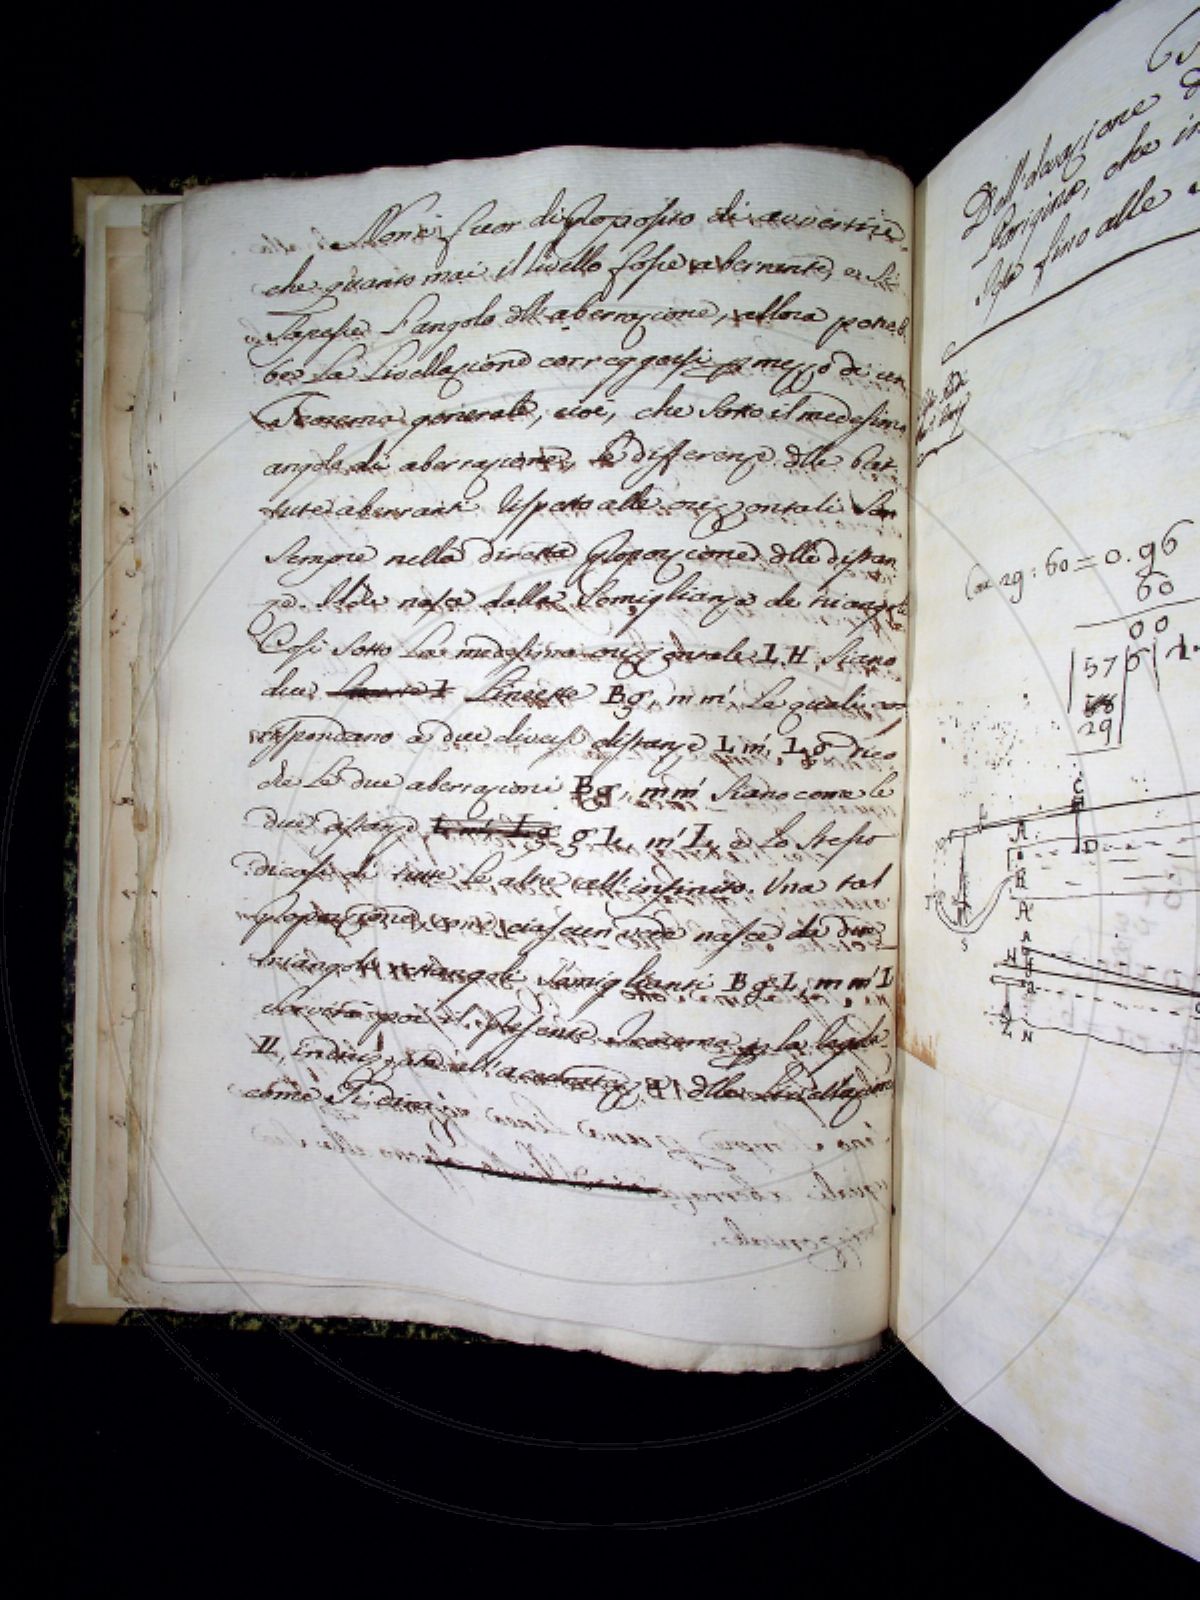 Non è fuor di proposito di avvertire
che quanto mai il livello fosse aberrante, e si
sapesse l'angolo dell'aberrazione, allora potreb
be la Livellazione correggersi p mezzo di un
Teorema generale, cioè, che sotto il medesimo
angolo di aberrazione, le differenze delle bat
tute aberranti rispetto alle orizzontali son
sempre nella diretta proporzione delle distan
ze. Il che nasce dalla somiglianza de triangoli
Così sotto la medesima orizzontale L H siano
due Lineette Bg, m m', le quali cor
rispondano a due diverse distanze L m', L g dico
che le due aberrazioni Bg, m m' siano come le
due distanze L m', L g g L, m' L, e lo stesso
dicasi di tutte le altre all'infinito. Una tal
proporzione, come ciascun vede nasce da due
triangoli rettangoli simiglianti B g L, m m' L
Servirà poi il presente Teorema p la regola
II, indirizzata all' delle Livellazioni
come si dirà
Dell'elevazione
Parigina, che in
fino alle
29 : 60 = 0. 96
60
00
57 6
58
29
C
A
D
B
A
S
A
H
Z N